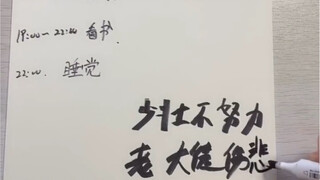 19:00~22:00 看书.
22:00. 睡觉
少壮不努力
老大徒伤悲